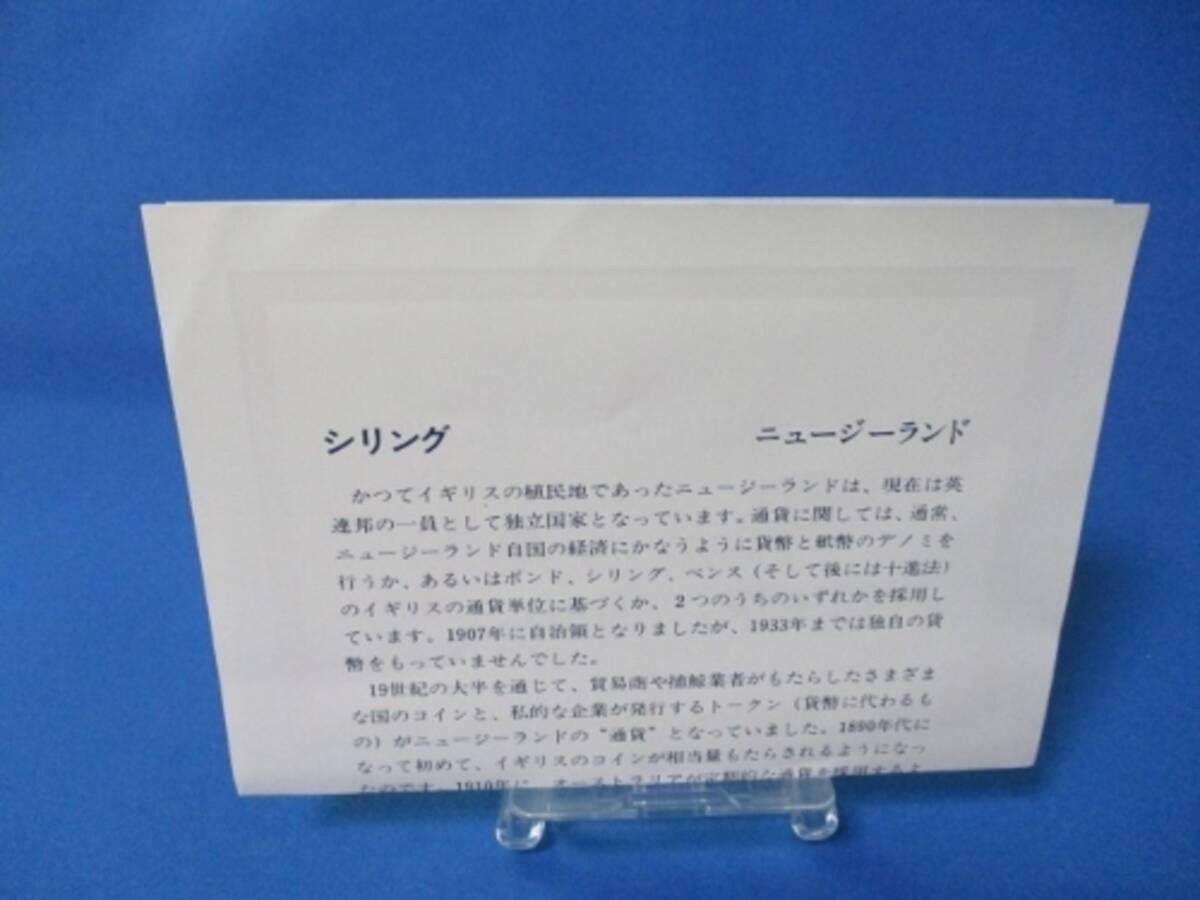 シリング ニュージーランド
かつてイギリスの植民地であったニュージーランドは、現在は英
連邦の一員として独立国家となっています。通貨に関しては、通常、
ニュージーランド自国の経済にかなうように貨幣と紙幣のデノミを
行うか、あるいはポンド、シリング、ペンス(そして後には十進法)
のイギリスの通貨単位に基づくか、2つのうちのいずれかを採用し
ています。1907年に自治領となりましたが、1933年までは独自の貨
幣をもっていませんでした。
19世紀の大半を通じて、貿易商や捕鯨業者がもたらしたさまざま
な国のコインと、私的な企業が発行するトークン(貨幣に代わるも
の)がニュージーランドの“通貨”となっていました。1890年代に
なって初めて、イギリスのコインが相当量もたらされるようになっ
たのです。1910年に、オーストラリアが定期的な通貨を採用するよ